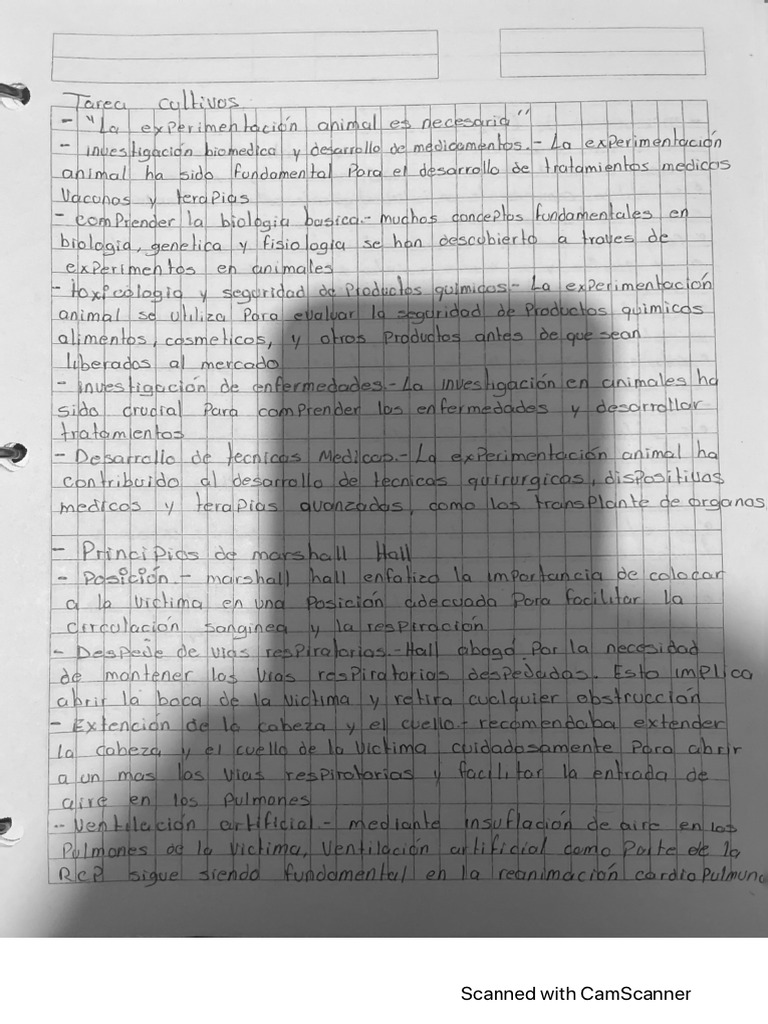 Tarea cultivos
- "La experimentación animal es necesaria"
- investigación biomedica y desarrollo de medicamentos.- La experimentación
animal ha sido fundamental Para el desarrollo de tratamientos medicos
Vacunas y terapias
- comprender la biologia basica.- muchos conceptos fundamentales en
biologia, genetica y fisiologia se han descubierto a traves de
experimentos en animales
- toxicologia y seguridad de Productos quimicos.- La experimentación
animal se utiliza Para evaluar la seguridad de Productos quimicos
alimentos, cosmeticos, y otros Productos antes de que sean
liberados al mercado
- investigación de enfermedades.- La investigación en animales ha
sido crucial Para comprender las enfermedades y desarrollar
tratamientos
- Desarrollo de tecnicas Medicas.- La experimentación animal ha
contribuido al desarrollo de tecnicas quirurgicas, dispositivos
medicos y terapias avanzadas, como los transplante de organos
- Principios de marshall Hall
- Posición - marshall hall enfatizo la importancia de colocar
a la victima en una Posición adecuada Para facilitar la
circulación sanginea y la respiración
- Despeje de vias respiratorias.- Hall abogó Por la necesidad
de mantener las vias respiratorias despejadas. Esto implica
abrir la boca de la victima y retira cualquier obstrucción
- Extención de la cabeza y el cuello - recomendaba extender
la cabeza y el cuello de la victima cuidadosamente Para abrir
a un mas las vias respiratorias y facilitar la entrada de
aire en los Pulmones
- Ventilación artificial - mediante insuflación de aire en los
Pulmones de la victima, Ventilación artificial como Parte de la
RCP sigue siendo fundamental en la reanimación cardio Pulmona
Scanned with CamScanner